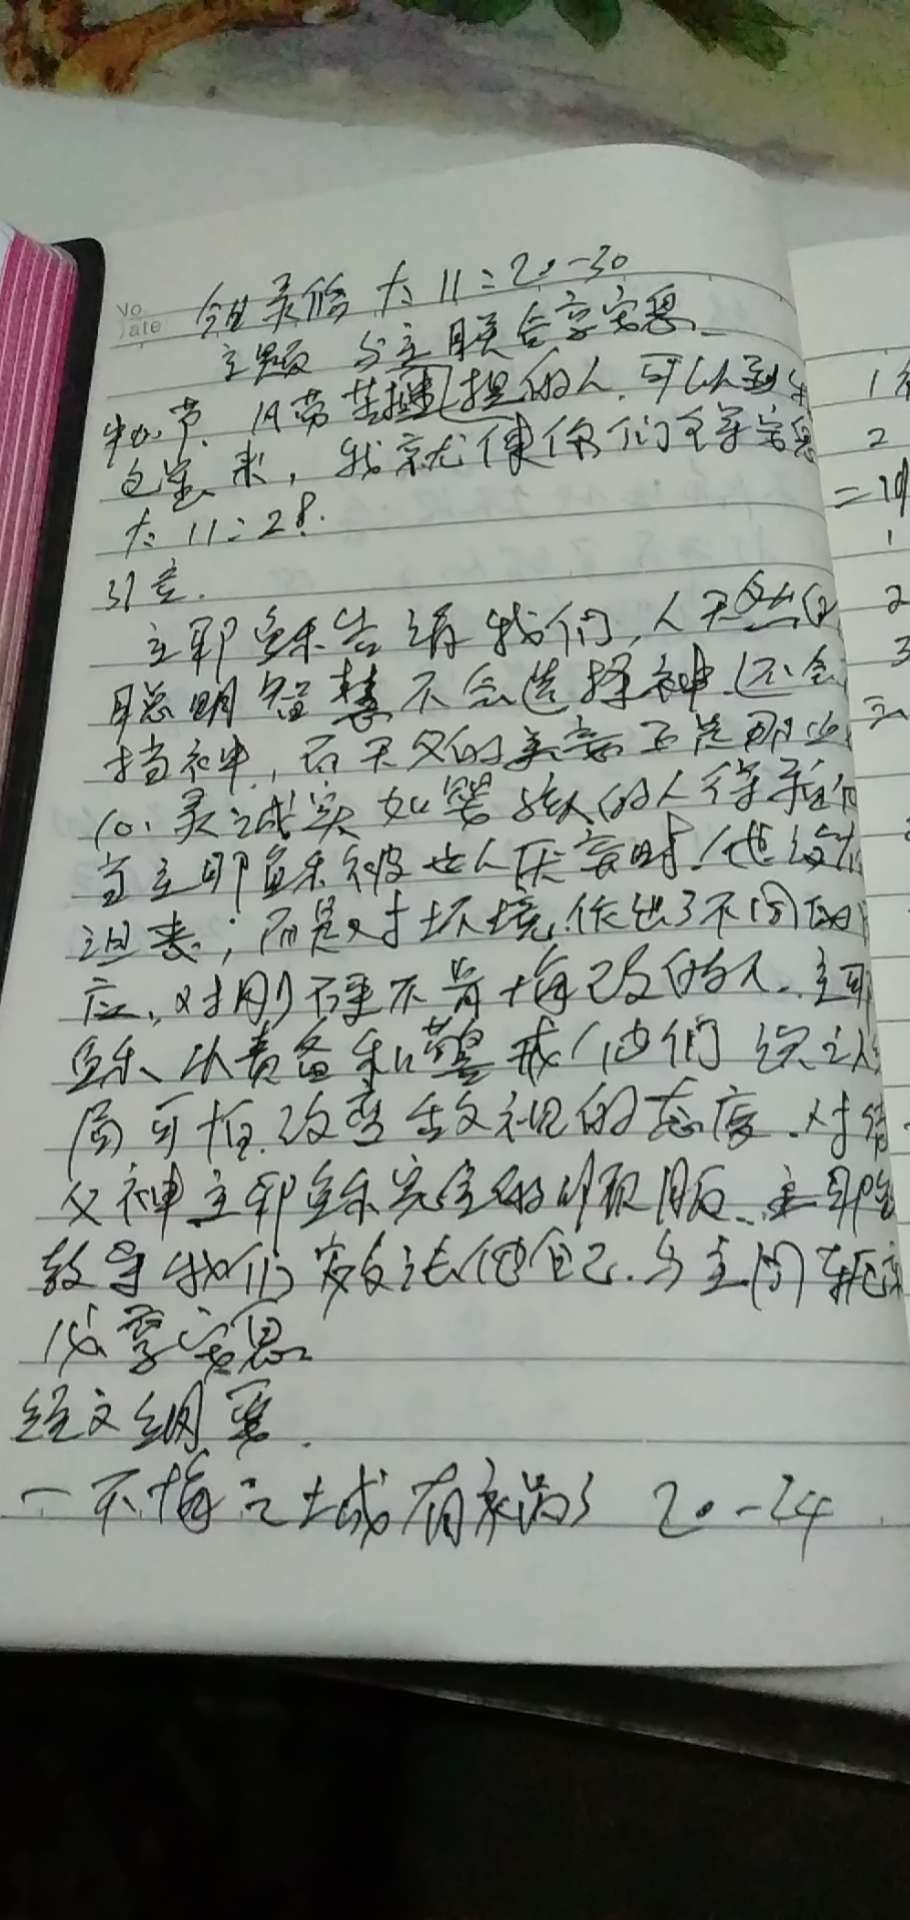 No
Date
今日灵修 太11:20-30
主题 与主联合享安息
中心节 凡劳苦担重担的人,可以到
这里来,我就使你们得安息
太11:28.
引言.
主耶稣告诉我们,人天然的
聪明智慧不会选择神,还会
挡神,而天父的美意正是那些
心灵诚实如婴孩的人得
当主耶稣被世人厌弃时,他没
沮丧;而是对环境作出了不同的
应,对刚硬不肯悔改的人.主耶
稣以责备和警戒他们
局可怕.改变 的态度.对待
父神主耶稣完全的顺服.主耶稣
教导我们效法他自己.与主同轭
必享安息
经文纲要.
一 不悔 之城有祸了 20-24
1
2
二
1
2
3
三